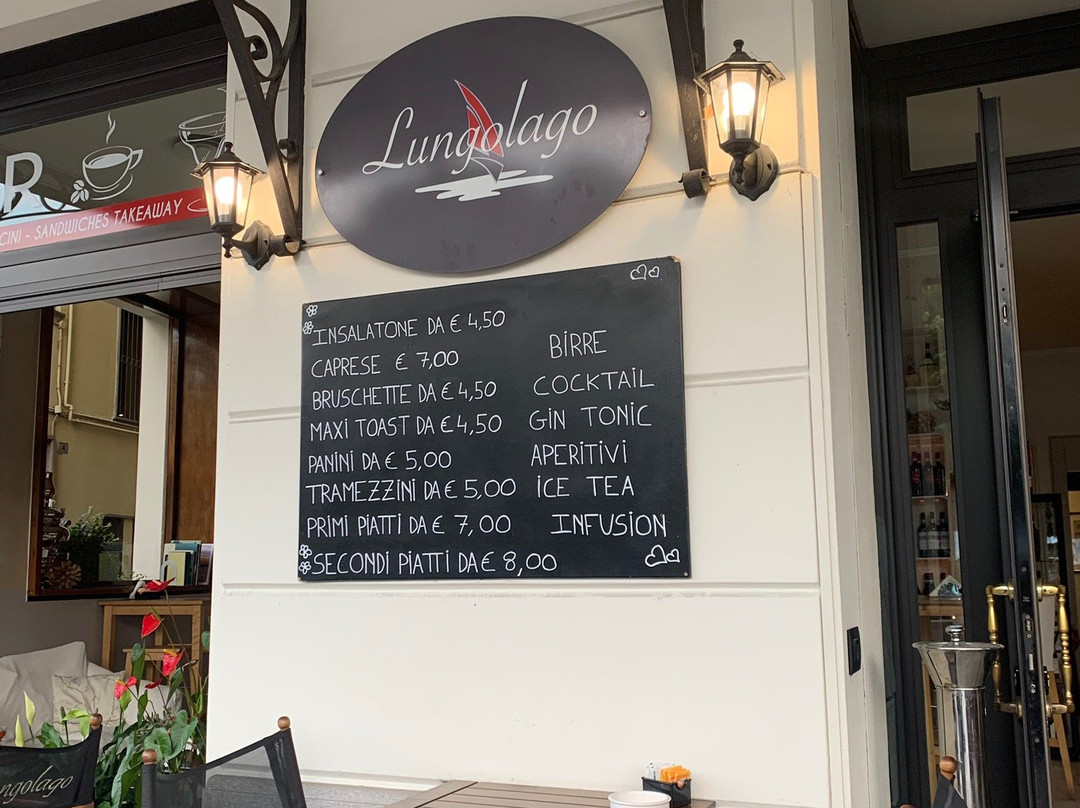 Lungolago
CINI - SANDWICHES TAKEAWAY
INSALATONE DA € 4,50
CAPRESE € 7,00
BRUSCHETTE DA € 4,50
MAXI TOAST DA € 4,50
PANINI DA € 5,00
TRAMEZZINI DA € 5,00
PRIMI PIATTI DA € 7,00
SECONDI PIATTI DA € 8,00
BIRRE
COCKTAIL
GIN TONIC
APERITIVI
ICE TEA
INFUSION
R
4
ngolago